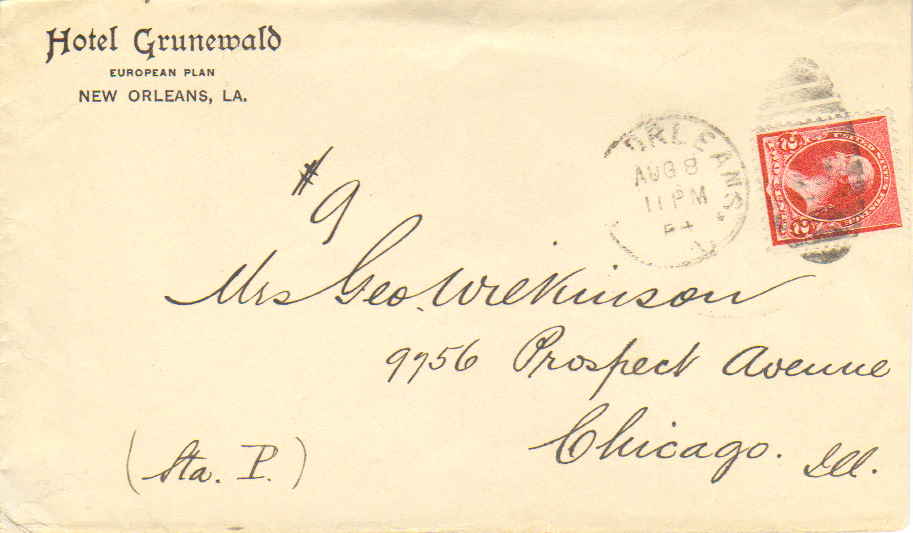 Hotel Grunewald
EUROPEAN PLAN
NEW ORLEANS, LA.
ORLEANS,
AUG 8
11 PM
2
UNITED STATES
2
#9
Mrs Geo. Wilkinson
9756 Prospect Avenue
Chicago. Ill.
(Sta. P.)